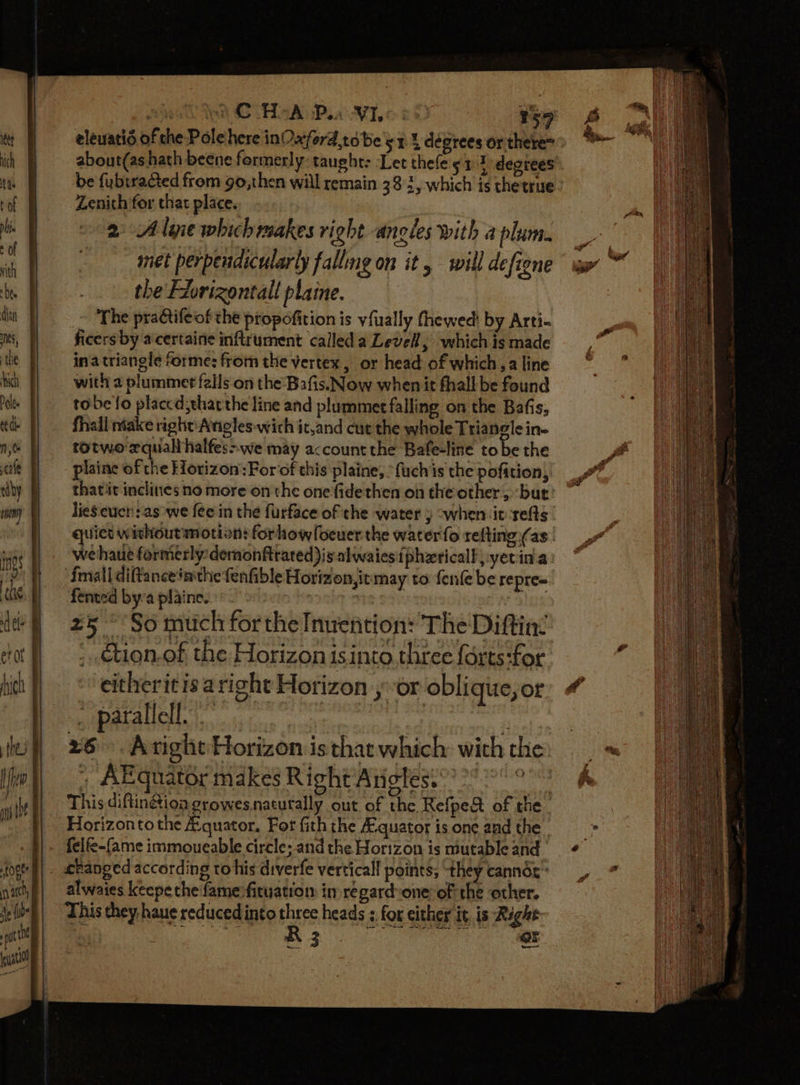 CHAP. VI. 159
eleuatiō of the Pole here in Oxford, to be 51 ½ degrees or there-
about (as hath beene formerly taught: Let these 51 ½ degrees
be subtracted from 90, then will remain 38 ½, which is the true
Zenith for that place.
2 A line which makes right angles with a plum-
met perpendicularly falling on it, will designe
the Horizontall plaine.
The practise of the proposition is vsually shewed by Arti-
ficers by a certaine instrument called a Levell, which is made
in a triangle forme: from the vertex, or head of which, a line
with a plummet falls on the Basis. Now when it shall be found
to be so placed, that the line and plummet falling on the Basis,
shall make right Angles with it, and cut the whole Triangle in-
to two æquall halfes: we may account the Base-line to be the
plaine of the Horizon: For of this plaine, such is the position,
that it inclines no more on the one side then on the other, but
lies euer: as we see in the surface of the water, when it rests
quiet without motion: for howsoeuer the water so resting (as
we haue formerly demonstrated) is alwaies sphæricall, yet in a
small distance in the sensible Horizon, it may to sense be repre-
sented by a plaine.
25 So much for the Inuention: The Distin-
ction of the Horizon is into three sorts: for
either it is a right Horizon, or oblique, or
parallell.
26 A right Horizon is that which with the
AEquator makes Right Angles.
This distinction growes naturally out of the Respect of the
Horizon to the Æquator. For sith the Æquator is one and the
selfe-same immoueable circle; and the Horizon is mutable and
changed according to his diverse verticall points, they cannot
alwaies keepe the same situation in regard one of the other.
This they haue reduced into three heads: for either it is Right
R 3 or